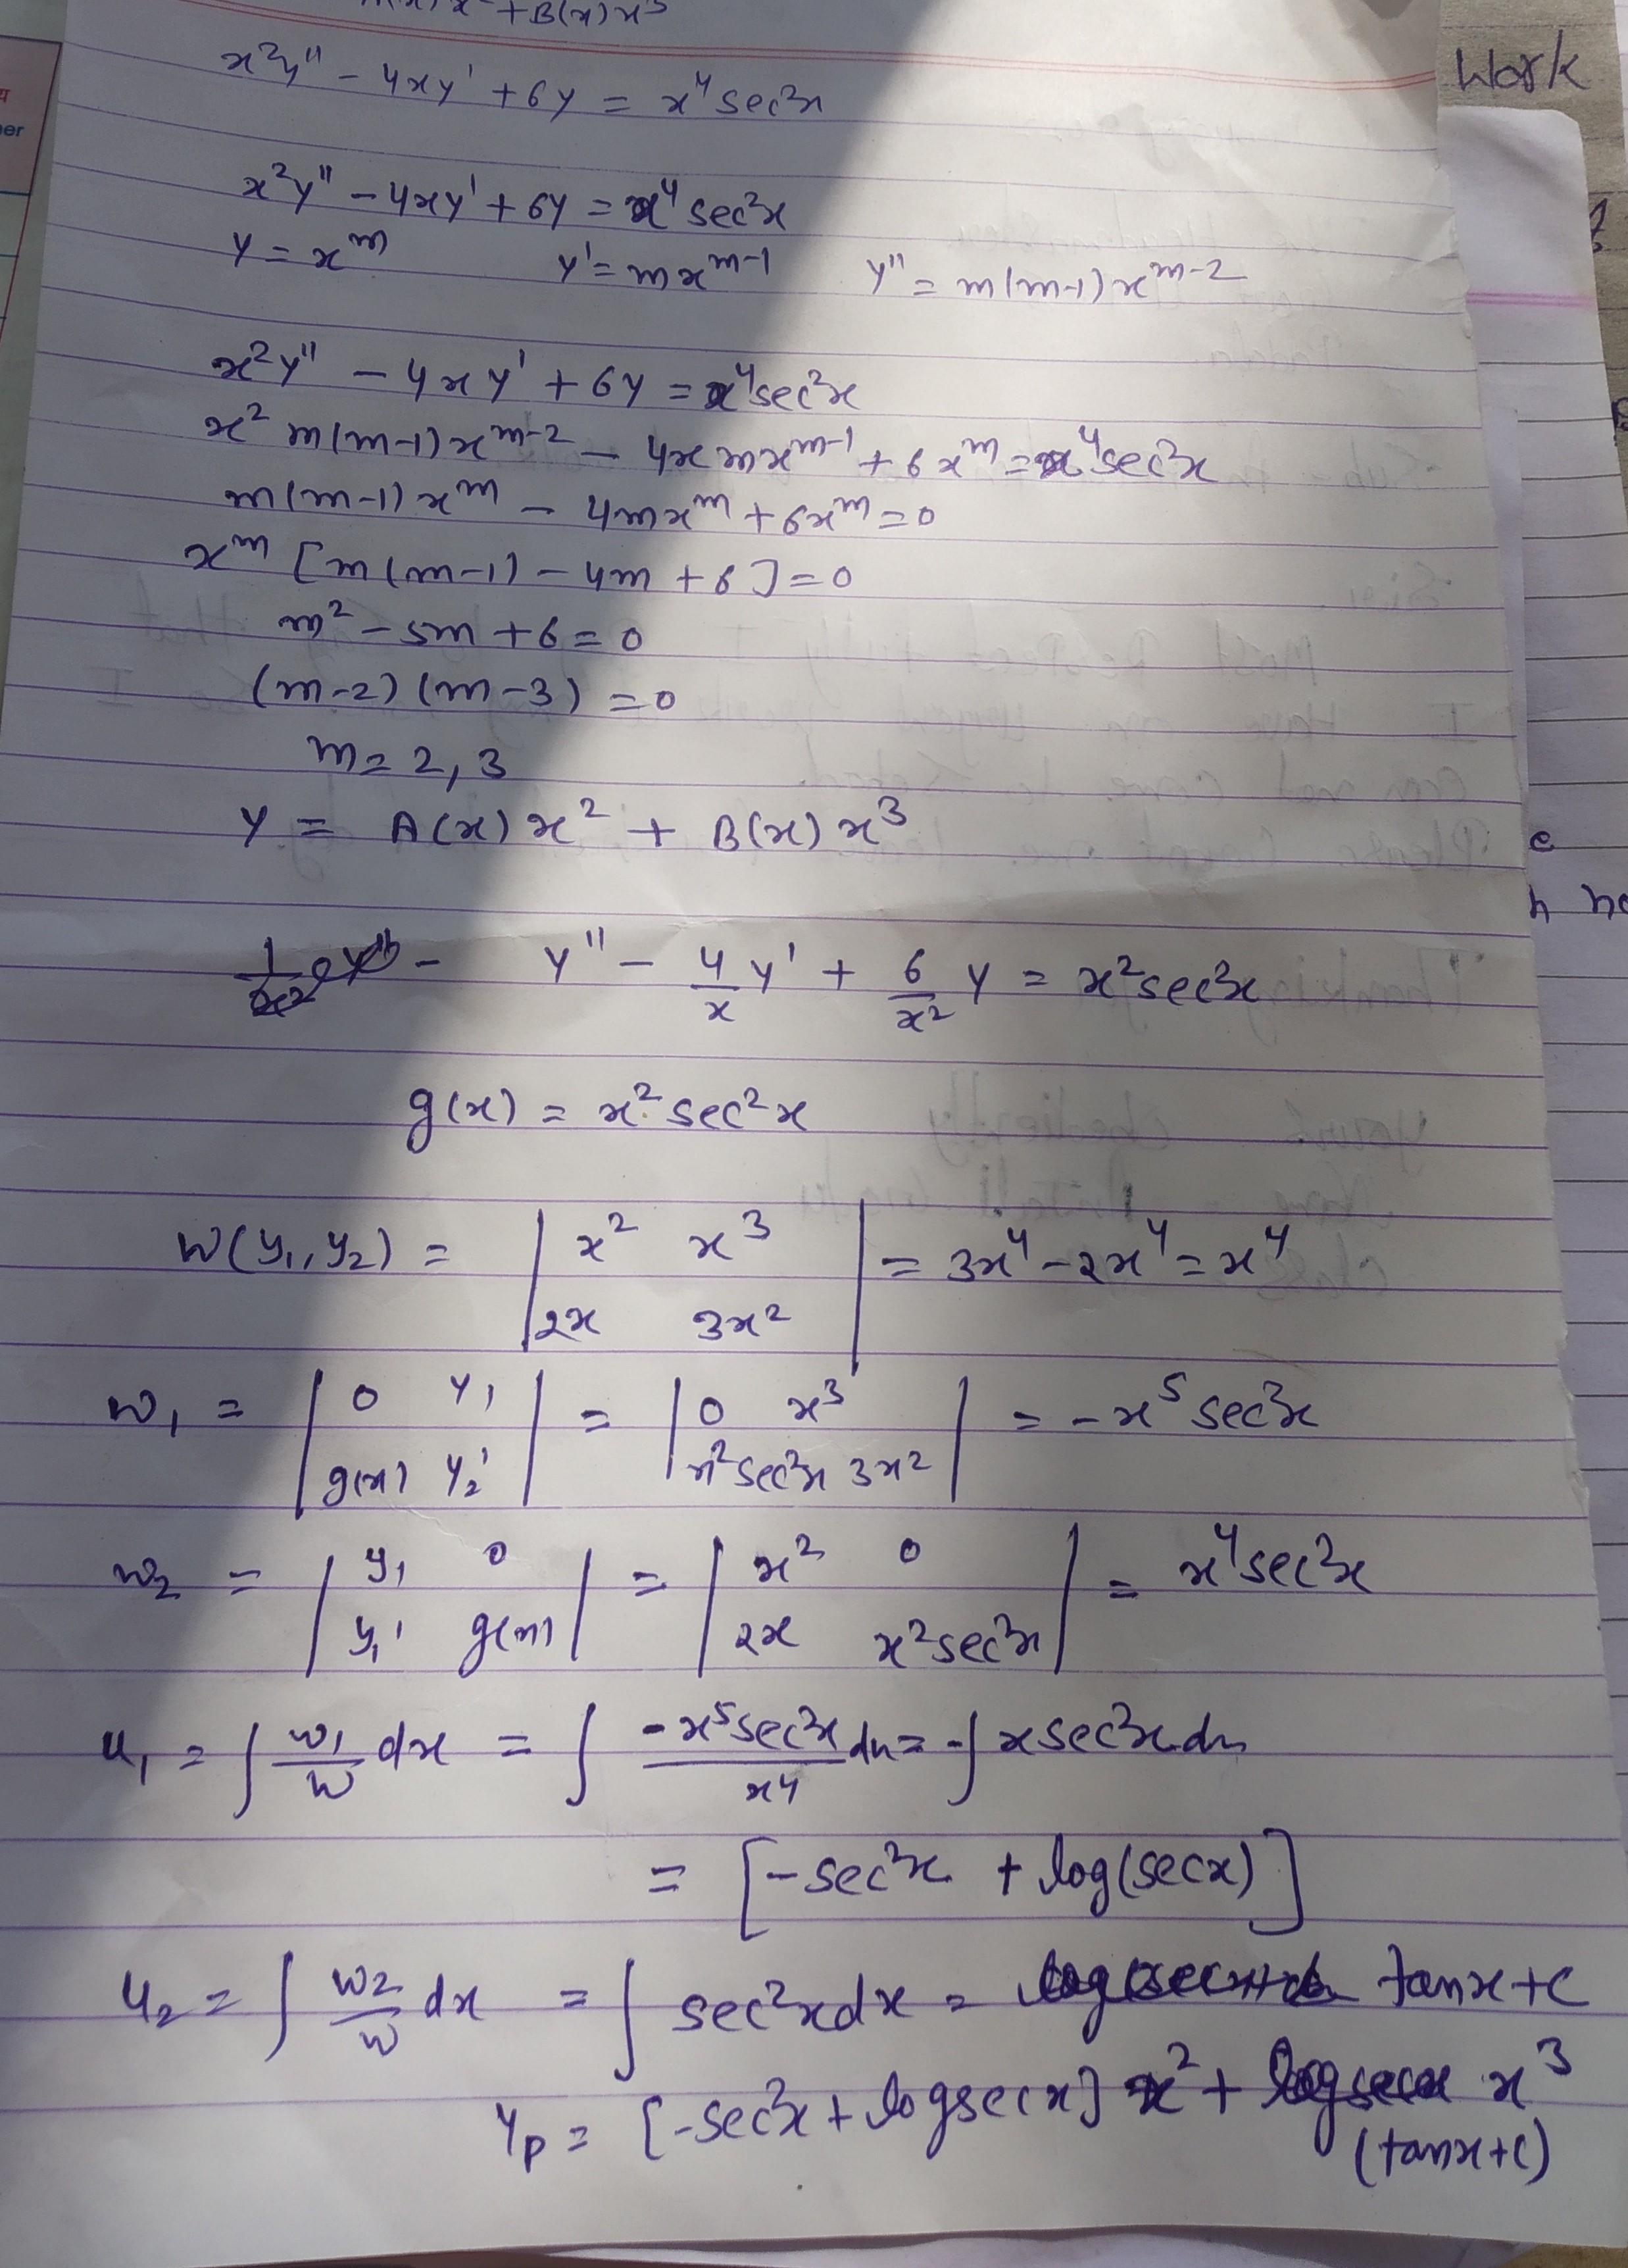 + B(x) x³
x²y'' - 4xy' + 6y = x⁴ sec²x
Work
x²y'' - 4xy' + 6y = x⁴ sec²x
y = x^m y' = mx^{m-1} y'' = m(m-1)x^{m-2}
x²y'' - 4xy' + 6y = x⁴sec²x
x² m(m-1)x^{m-2} - 4x mx^{m-1} + 6x^m = x⁴sec²x
m(m-1)x^m - 4mx^m + 6x^m = 0
x^m [m(m-1) - 4m + 6] = 0
m² - 5m + 6 = 0
(m-2)(m-3) = 0
m = 2, 3
y = A(x)x² + B(x)x³
y'' - 4/x y' + 6/x² y = x²sec²x
g(x) = x² sec²x
W(y₁, y₂) = | x² x³ | = 3x⁴ - 2x⁴ = x⁴
| 2x 3x² |
w₁ = | 0 y₁ | = | 0 x³ | = -x⁵ sec²x
| g(x) y₂' | | x²sec²x 3x² |
w₂ = | y₁ 0 | = | x² 0 | = x⁴sec²x
| y₁' g(x) | | 2x x²sec²x |
u₁ = ∫ w₁/w dx = ∫ -x⁵sec²x/x⁴ dx = -∫ x sec²x dx
= [-sec²x + log(secx)]
u₂ = ∫ w₂/w dx = ∫ sec²x dx = tanx + c
y_p = [-sec²x + logsecx] x² + x³
(tanx+c)